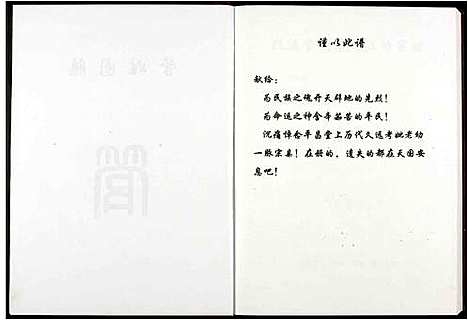 谨以此谱
献给:
为民族之魂开天辟地的先烈!
为命运之神含辛茹苦的平民!
沉痛悼念平昌堂上历代久远考妣老幼
一脉宗亲!在册的,遗失的都在天国安
息吧!